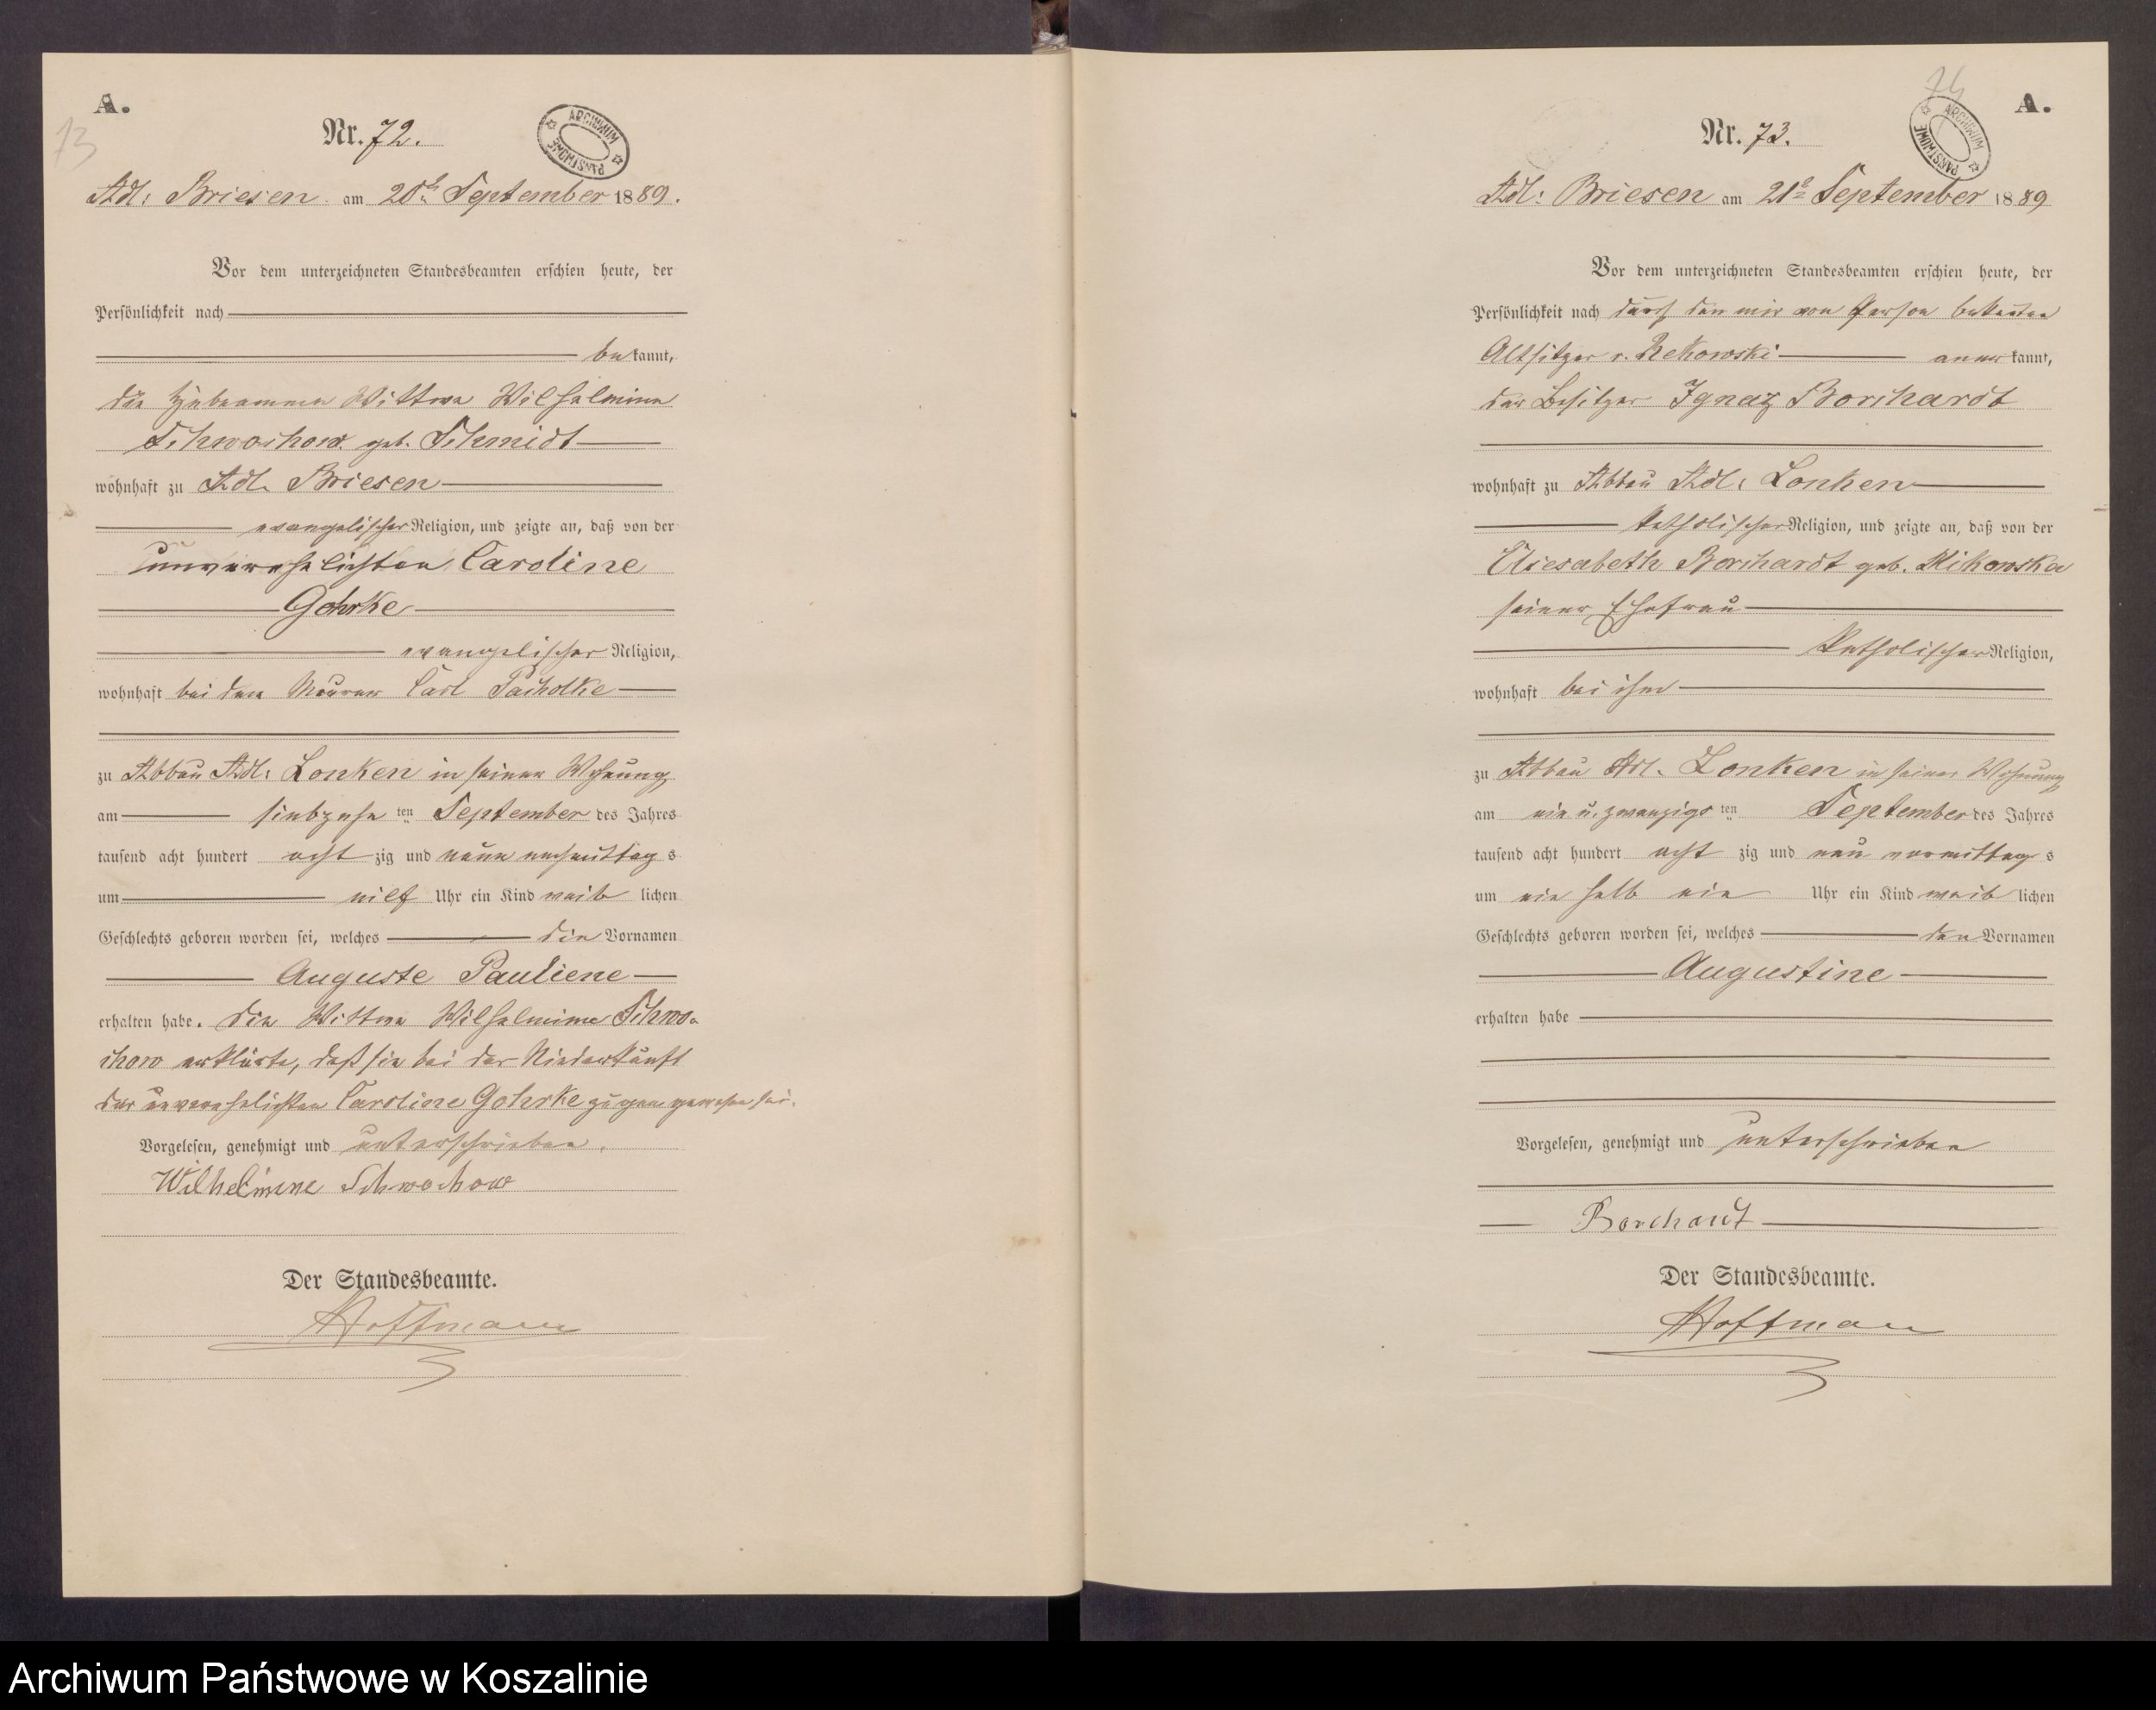 A.
73
Nr. 72.
ARCHIWUM PAŃSTWOWE
Adl: Briesen am 20t. September 1889.
Vor dem unterzeichneten Standesbeamten erschien heute, der
Persönlichkeit nach
bekannt,
die Hebeamme Wittwe Wilhelmine
Schwochow geb. Schmidt
wohnhaft zu Adl. Briesen
evangelischer Religion, und zeigte an, daß von der
unverehelichten Caroline
Gohrke
evangelischer Religion,
wohnhaft bei dem Maurer Carl Pacholke
zu Abbau Adl: Lonken in seiner Wohnung
am siebzehnten September des Jahres
tausend acht hundert achtzig und neun nachmittags
um eilf Uhr ein Kind weiblichen
Geschlechts geboren worden sei, welches die Vornamen
Auguste Pauliene
erhalten habe. Die Wittwe Wilhelmine Schwo-
chow erklärte, daß sie bei der Niederkunft
der unverehelichten Caroline Gohrke zugen gewesen sei.
Vorgelesen, genehmigt und unterschrieben.
Wilhelmine Schwochow
Der Standesbeamte.
Hoffmann
74
A.
Nr. 73.
ARCHIWUM PAŃSTWOWE
Adl: Briesen am 21t September 1889
Vor dem unterzeichneten Standesbeamten erschien heute, der
Persönlichkeit nach durch den mir von Person bekannten
Altsitzer v. Rekowski anerkannt,
der Besitzer Ignaz Borchardt
wohnhaft zu Abbau Adl: Lonken
katholischer Religion, und zeigte an, daß von der
Eliesabeth Borchardt geb. Mikowska
seiner Ehefrau
katholischer Religion,
wohnhaft bei ihm
zu Abbau Adl. Lonken in seiner Wohnung
am ein u. zwanzigsten September des Jahres
tausend acht hundert achtzig und neun vormittags
um ein halb ein Uhr ein Kind weiblichen
Geschlechts geboren worden sei, welches den Vornamen
Augustine
erhalten habe
Vorgelesen, genehmigt und unterschrieben
Borchardt
Der Standesbeamte.
Hoffmann
Archiwum Państwowe w Koszalinie